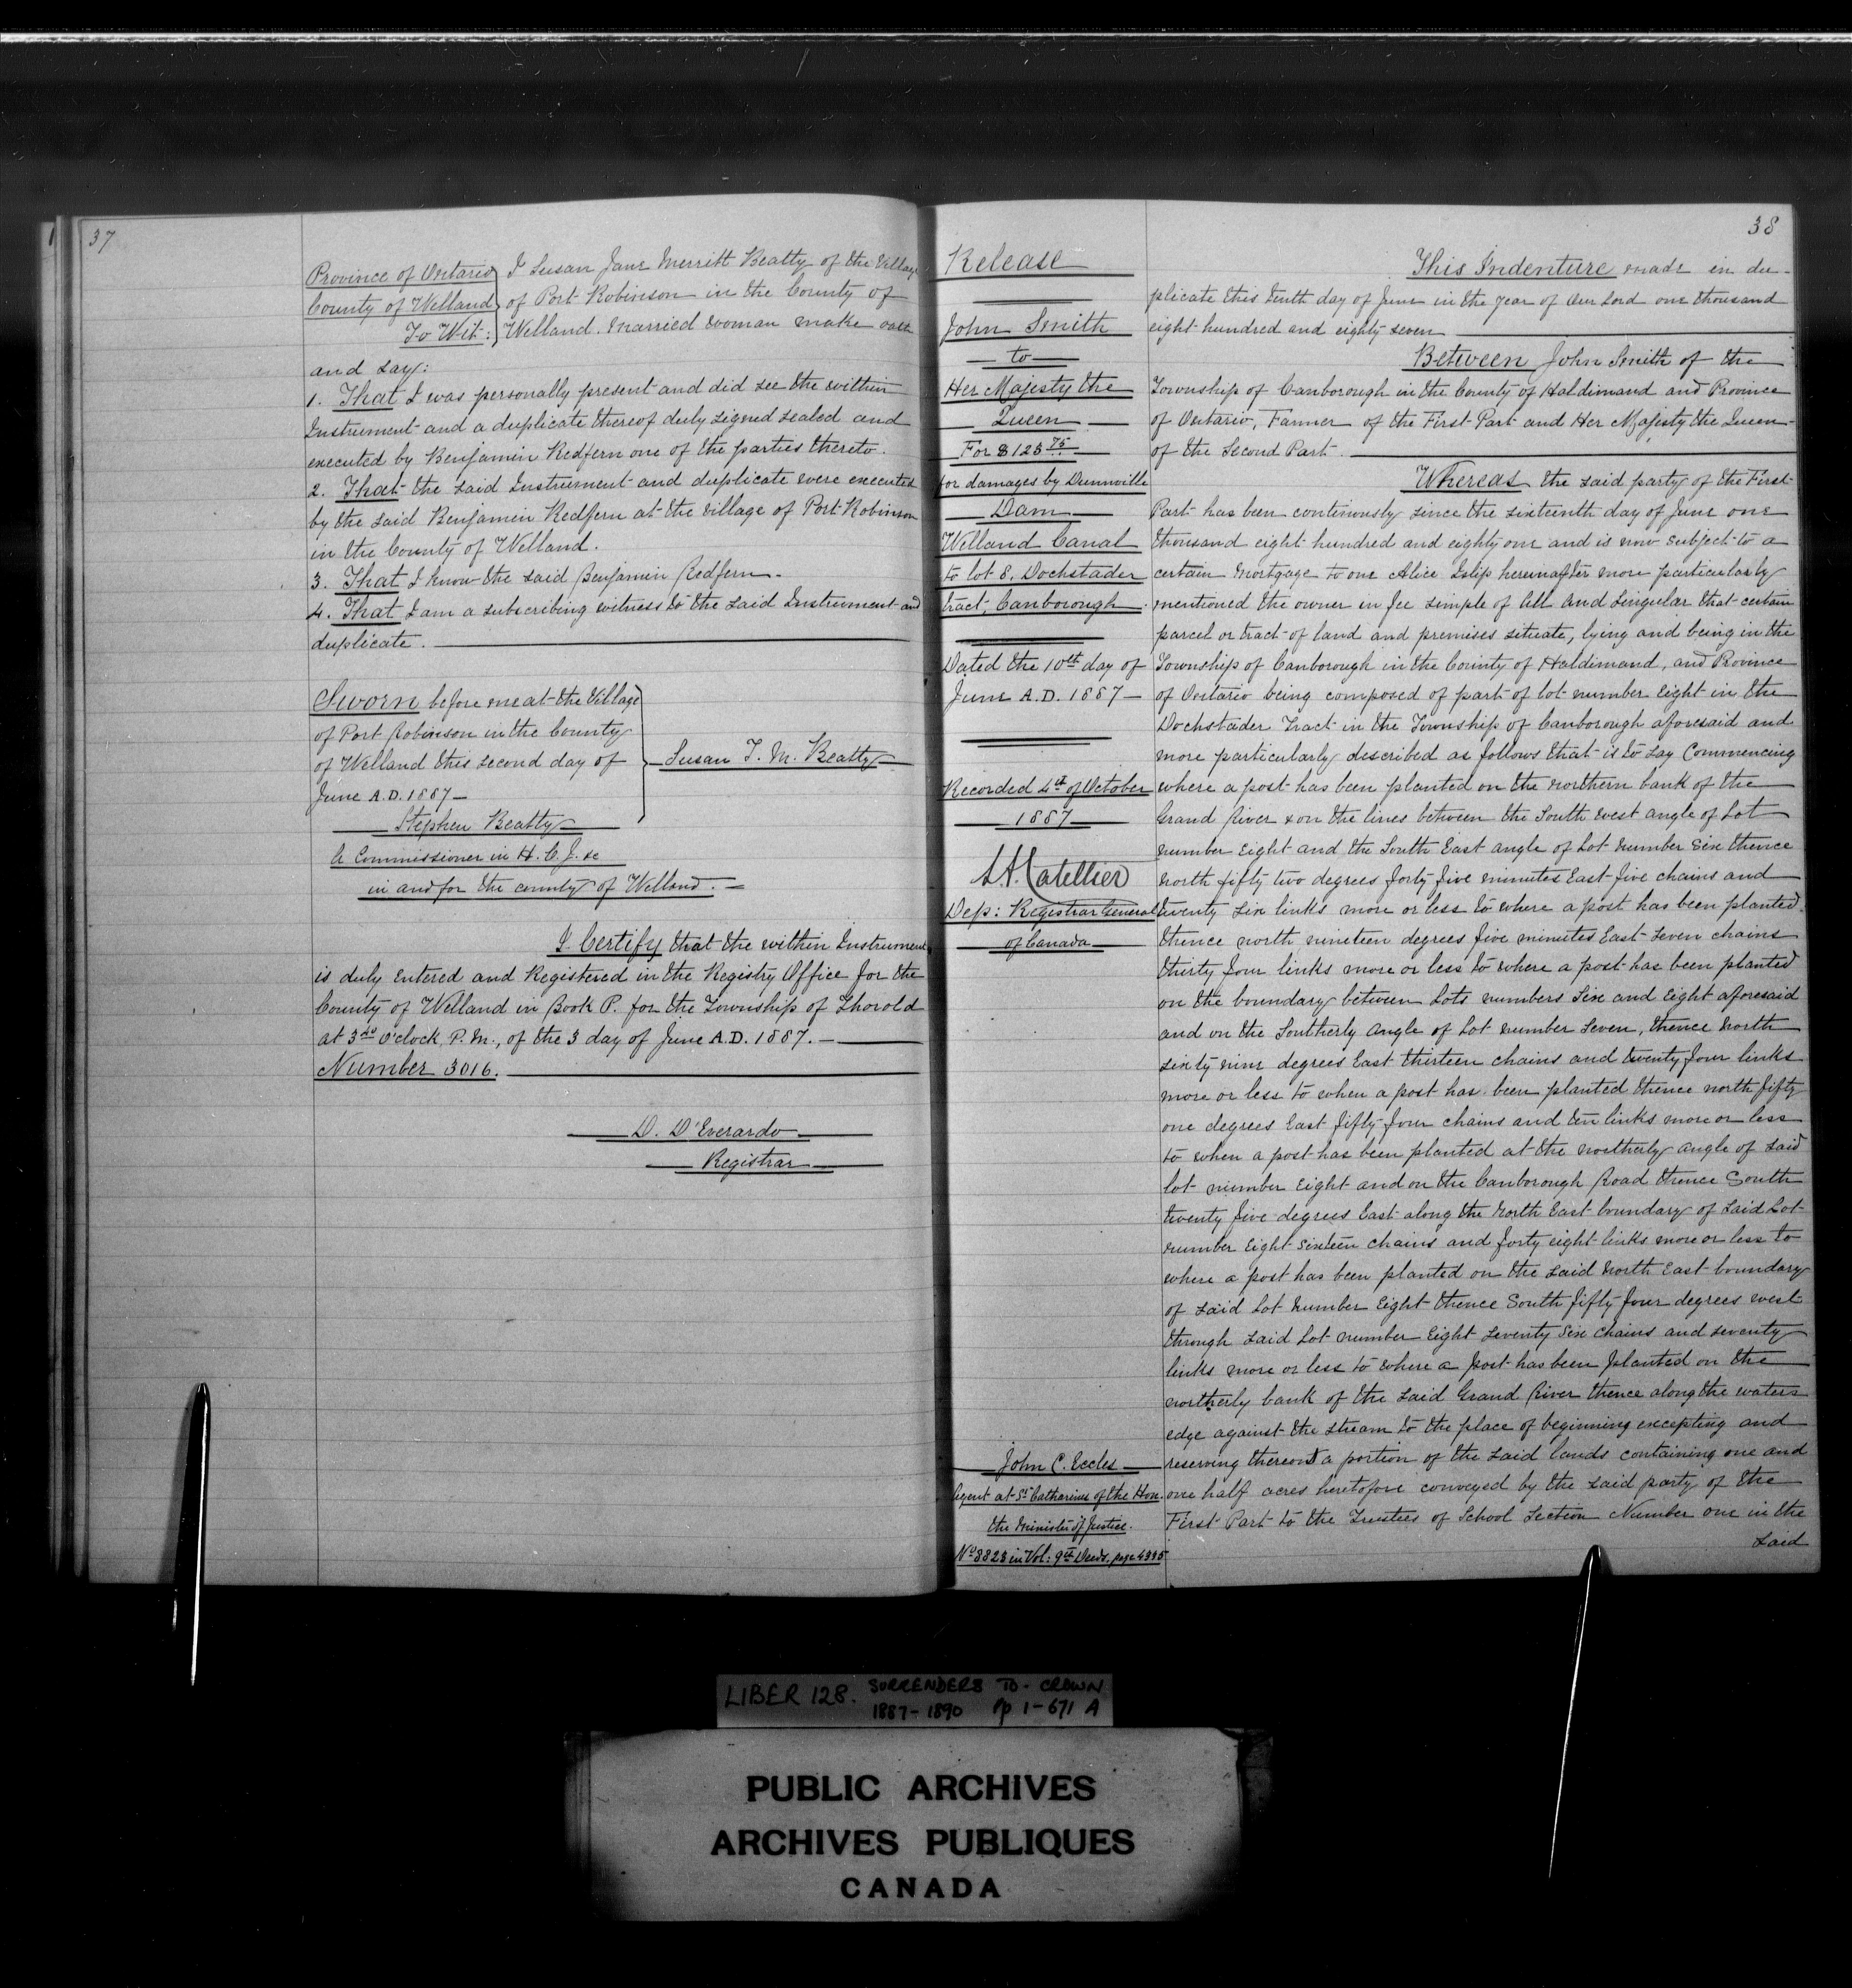 37
Province of Ontario
County of Welland
To Wit:
I Susan Jane Merritt Beatty of the Village
of Port Robinson in the County of
Welland. Married woman make oath
and say:
1. That I was personally present and did see the within
Instrument and a duplicate thereof duly signed sealed and
executed by Benjamin Redfern one of the parties thereto.
2. That the said Instrument and duplicate were executed
by the said Benjamin Redfern at the village of Port Robinson
in the County of Welland.
3. That I know the said Benjamin Redfern.
4. That I am a subscribing witness to the said Instrument and
duplicate.
Sworn before me at the Village
of Port Robinson in the County
of Welland this second day of
June A.D. 1887
Susan J. M. Beatty
Stephen Beatty
A Commissioner in H. C. J. &c
in and for the county of Welland.
I Certify that the within Instrument
is duly Entered and Registered in the Registry Office for the
County of Welland in Book P. for the Township of Thorold
at 3 O'clock P.M., of the 3 day of June A.D. 1887.
Number 3016.
D. D'Everardo
Registrar
38
Release
John Smith
to
Her Majesty the
Queen
For $128 75
for damages by Dunnville
Dam
Welland Canal
to lot 8, Dochstader
tract, Canborough.
Dated the 10th day of
June A.D. 1887
Recorded 4th of October
1887
L.A. Catellier
Dep: Registrar General
of Canada
John C. Eccles
Agent at St Catharines of the Hon.
the Minister of Justice.
No 8828 in Vol: 9th Deeds, page 4335
This Indenture made in du-
plicate this tenth day of June in the year of Our Lord one thousand
eight hundred and eighty seven
Between John Smith of the
Township of Canborough in the County of Haldimand and Province
of Ontario, Farmer of the First Part and Her Majesty the Queen
of the Second Part.
Whereas the said party of the First
Part has been continously since the sixteenth day of June one
thousand eight hundred and eighty one and is now subject to a
certain Mortgage to one Alice Islip hereinafter more particularly
mentioned the owner in fee simple of All and Singular that certain
parcel or tract of land and premises situate, lying and being in the
Township of Canborough in the County of Haldimand, and Province
of Ontario being composed of part of lot number eight in the
Dochstader Tract in the Township of Canborough aforesaid and
more particularly described as follows that is to say Commencing
where a post has been planted on the northern bank of the
Grand River & on the lines between the South West angle of Lot
number Eight and the South East angle of Lot number Six thence
north fifty two degrees forty five minutes East five chains and
twenty six links more or less to where a post has been planted.
thence north nineteen degrees five minutes East seven chains
thirty four links more or less to where a post has been planted
on the boundary between Lots numbers Six and Eight aforesaid
and on the Southerly Angle of Lot number Seven, thence North
sixty nine degrees East thirteen chains and twenty four links
more or less to when a post has been planted thence north fifty
one degrees East fifty four chains and ten links more or less
to when a post has been planted at the northerly angle of said
lot number Eight and on the Canborough Road thence South
twenty five degrees East along the North East boundary of said Lot
number Eight sixteen chains and forty eight links more or less to
where a post has been planted on the said North East boundary
of said Lot number Eight thence South fifty four degrees West
through said Lot number Eight seventy six chains and seventy
links more or less to where a post has been planted on the
northerly bank of the said Grand River thence along the waters
edge against the stream to the place of beginning excepting and
reserving thereout a portion of the said lands containing one and
one half acres heretofore conveyed by the said party of the
First Part to the Trustees of School Section Number one in the
said
LIBER 128. SURRENDERS TO CROWN
1887-1890 Pp 1-671 A
PUBLIC ARCHIVES
ARCHIVES PUBLIQUES
CANADA